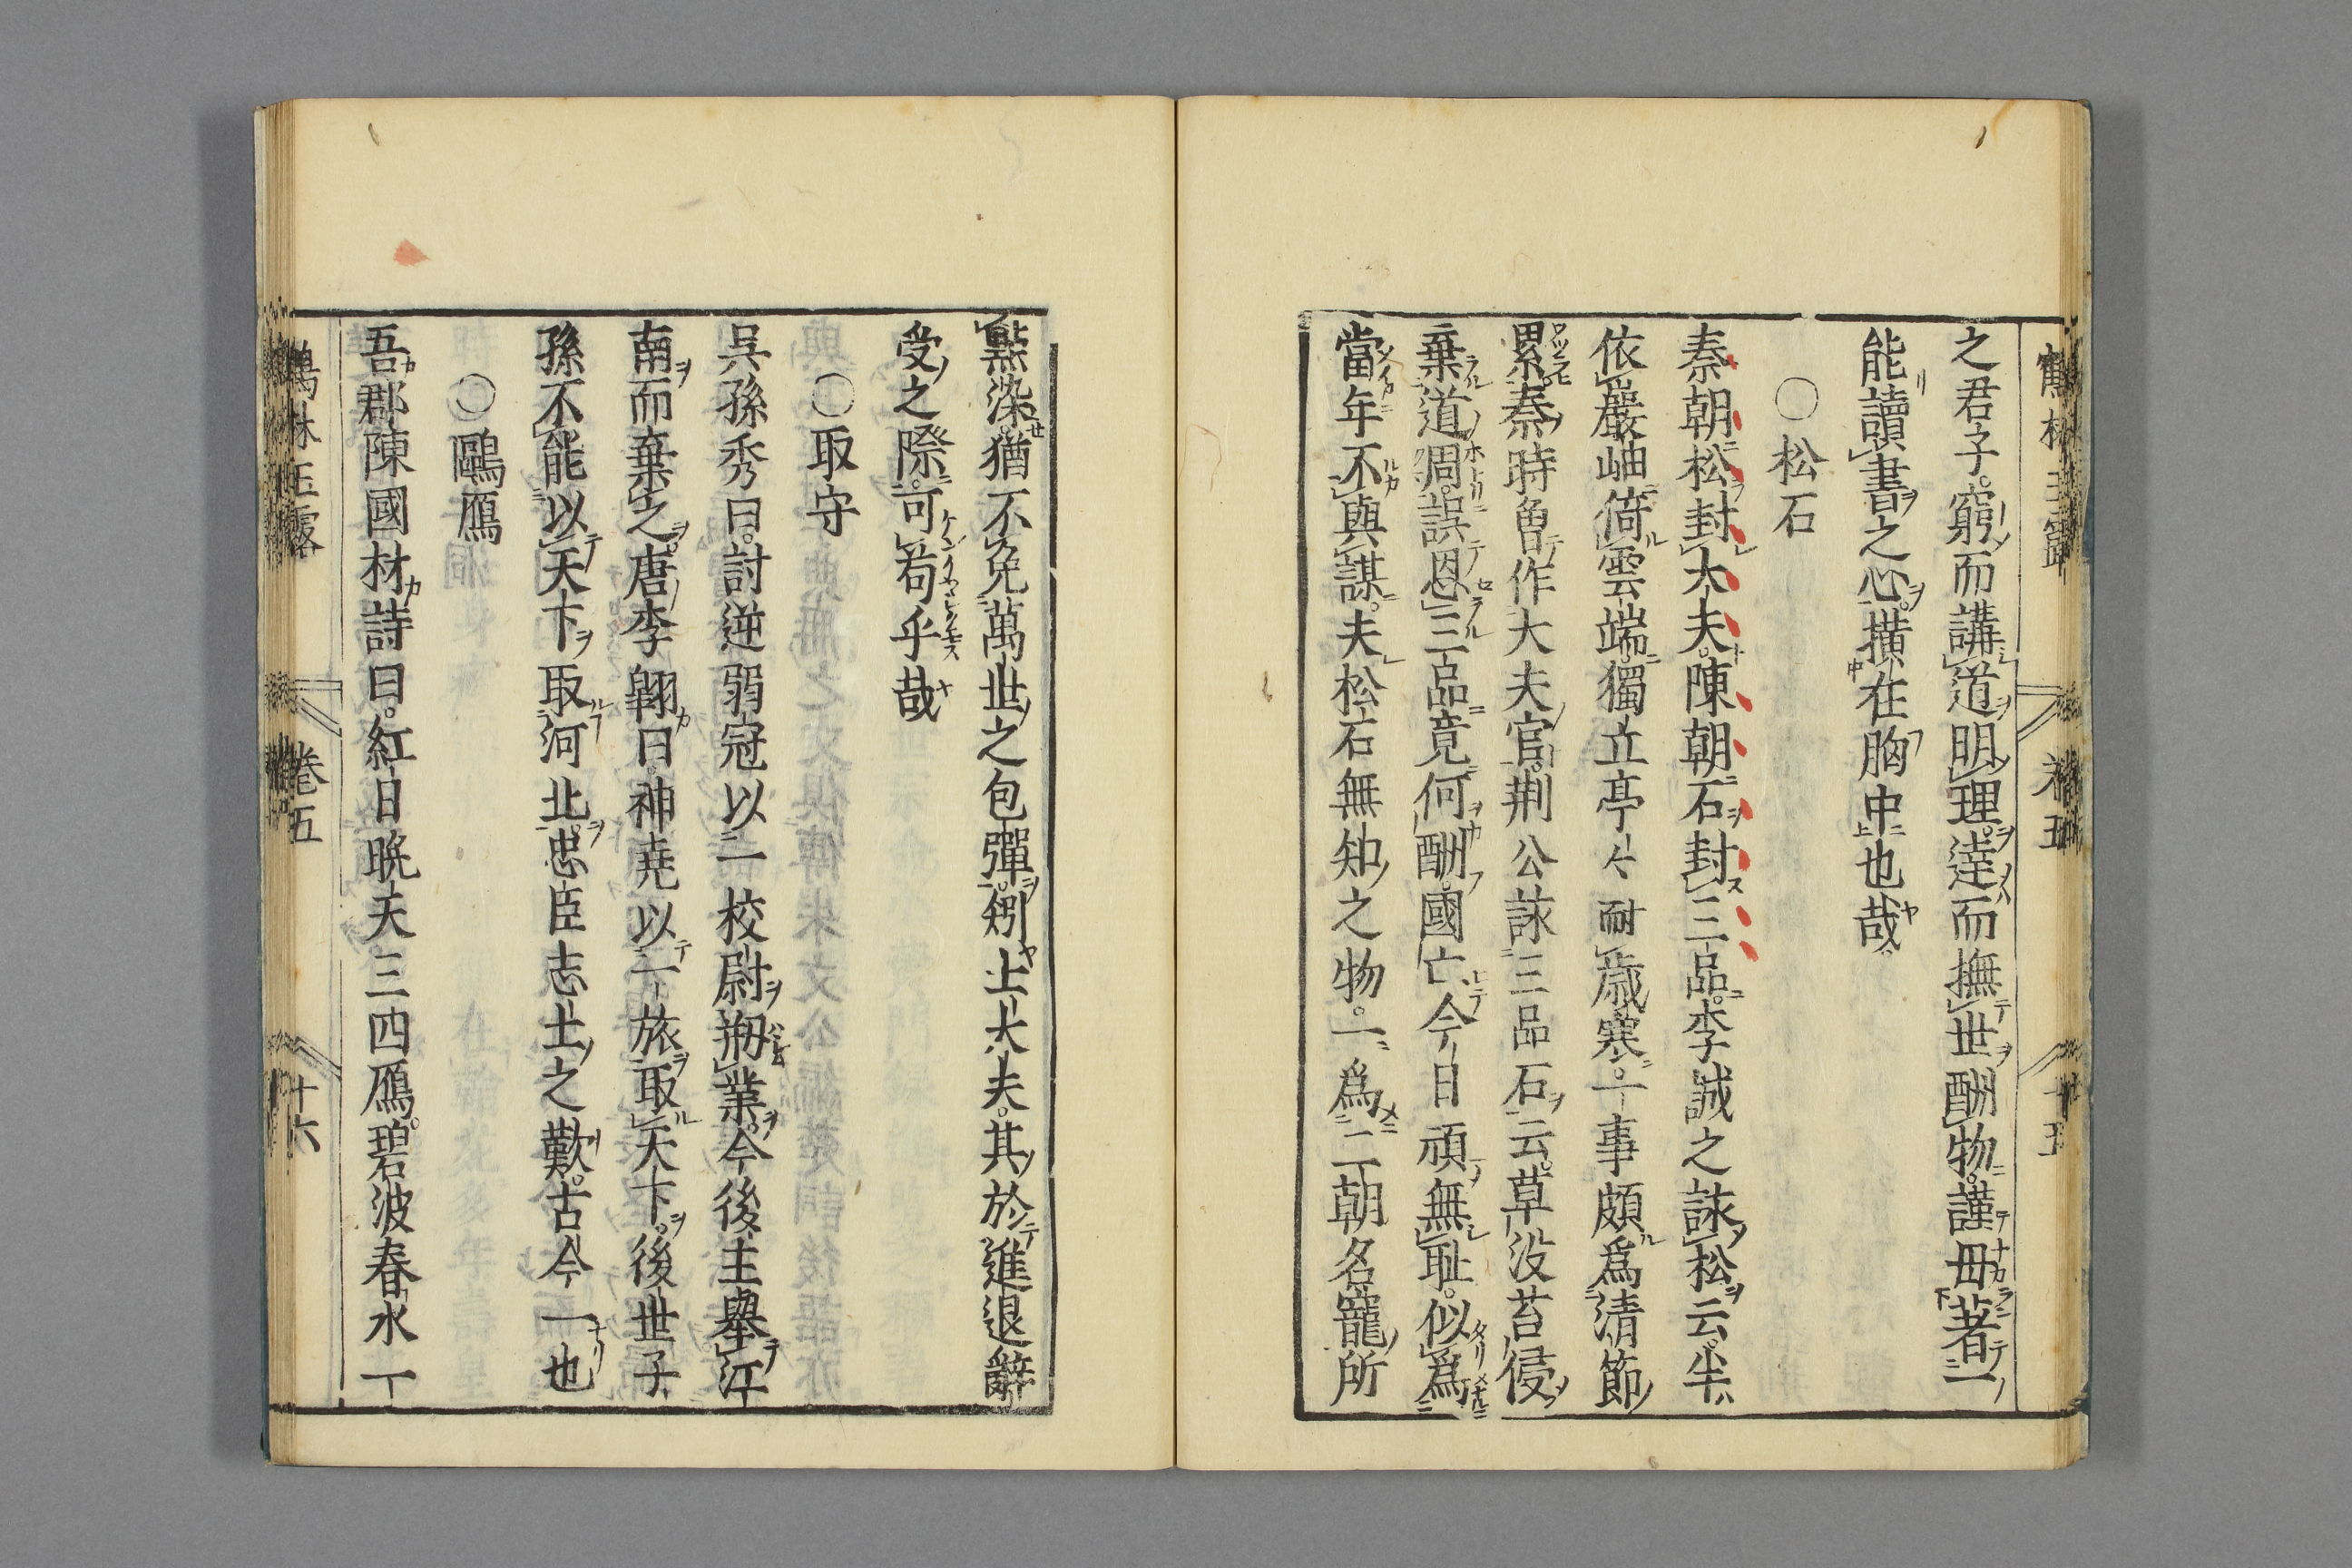 之君子。窮而講道明理。達而撫世酬物。謹毋著一
能讀書之心。横在胸中也哉
〇松石
秦朝松封大夫。陳朝石封三品。李誠之詠松云。半
依巖岫倚雲端。獨立亭亭耐歳寒。一事頗爲清節
累。秦時曾作大夫官。荆公詠三品石云。草没苔侵
棄道周。誤恩三品竟何酬。國亡今日頑無耻。似爲
當年不與謀。夫松石無知之物。一爲二朝名寵所
點染。猶不免萬世之包彈。矧士大夫。其於進退辭
受之際。可苟乎哉
〇取守
呉孫秀曰。討逆弱冠以一校尉剏業。今後主擧江
南而棄之。唐李翺曰。神堯以一旅取天下。後世子
孫不能以天下取河北。忠臣志士之歎。古今一也
〇鷗鴈
吾郡陳國材詩曰。紅日晩天三四鴈。碧波春水一
鶴林玉露 卷五 十六